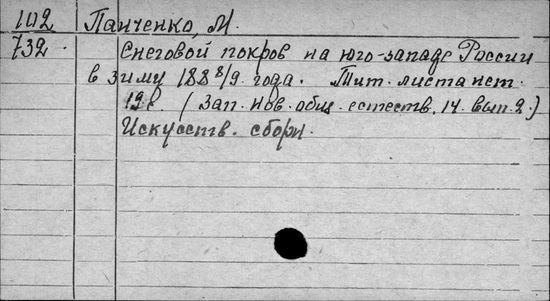 102 Панченко, М.
732. Снеговой покров на юго-западе России
в зиму 188 8/9. года. Тит. листа нет.
19 с. (Зап. Нов. общ. естеств. 14. вып. 2.)
Искусств. сборн.